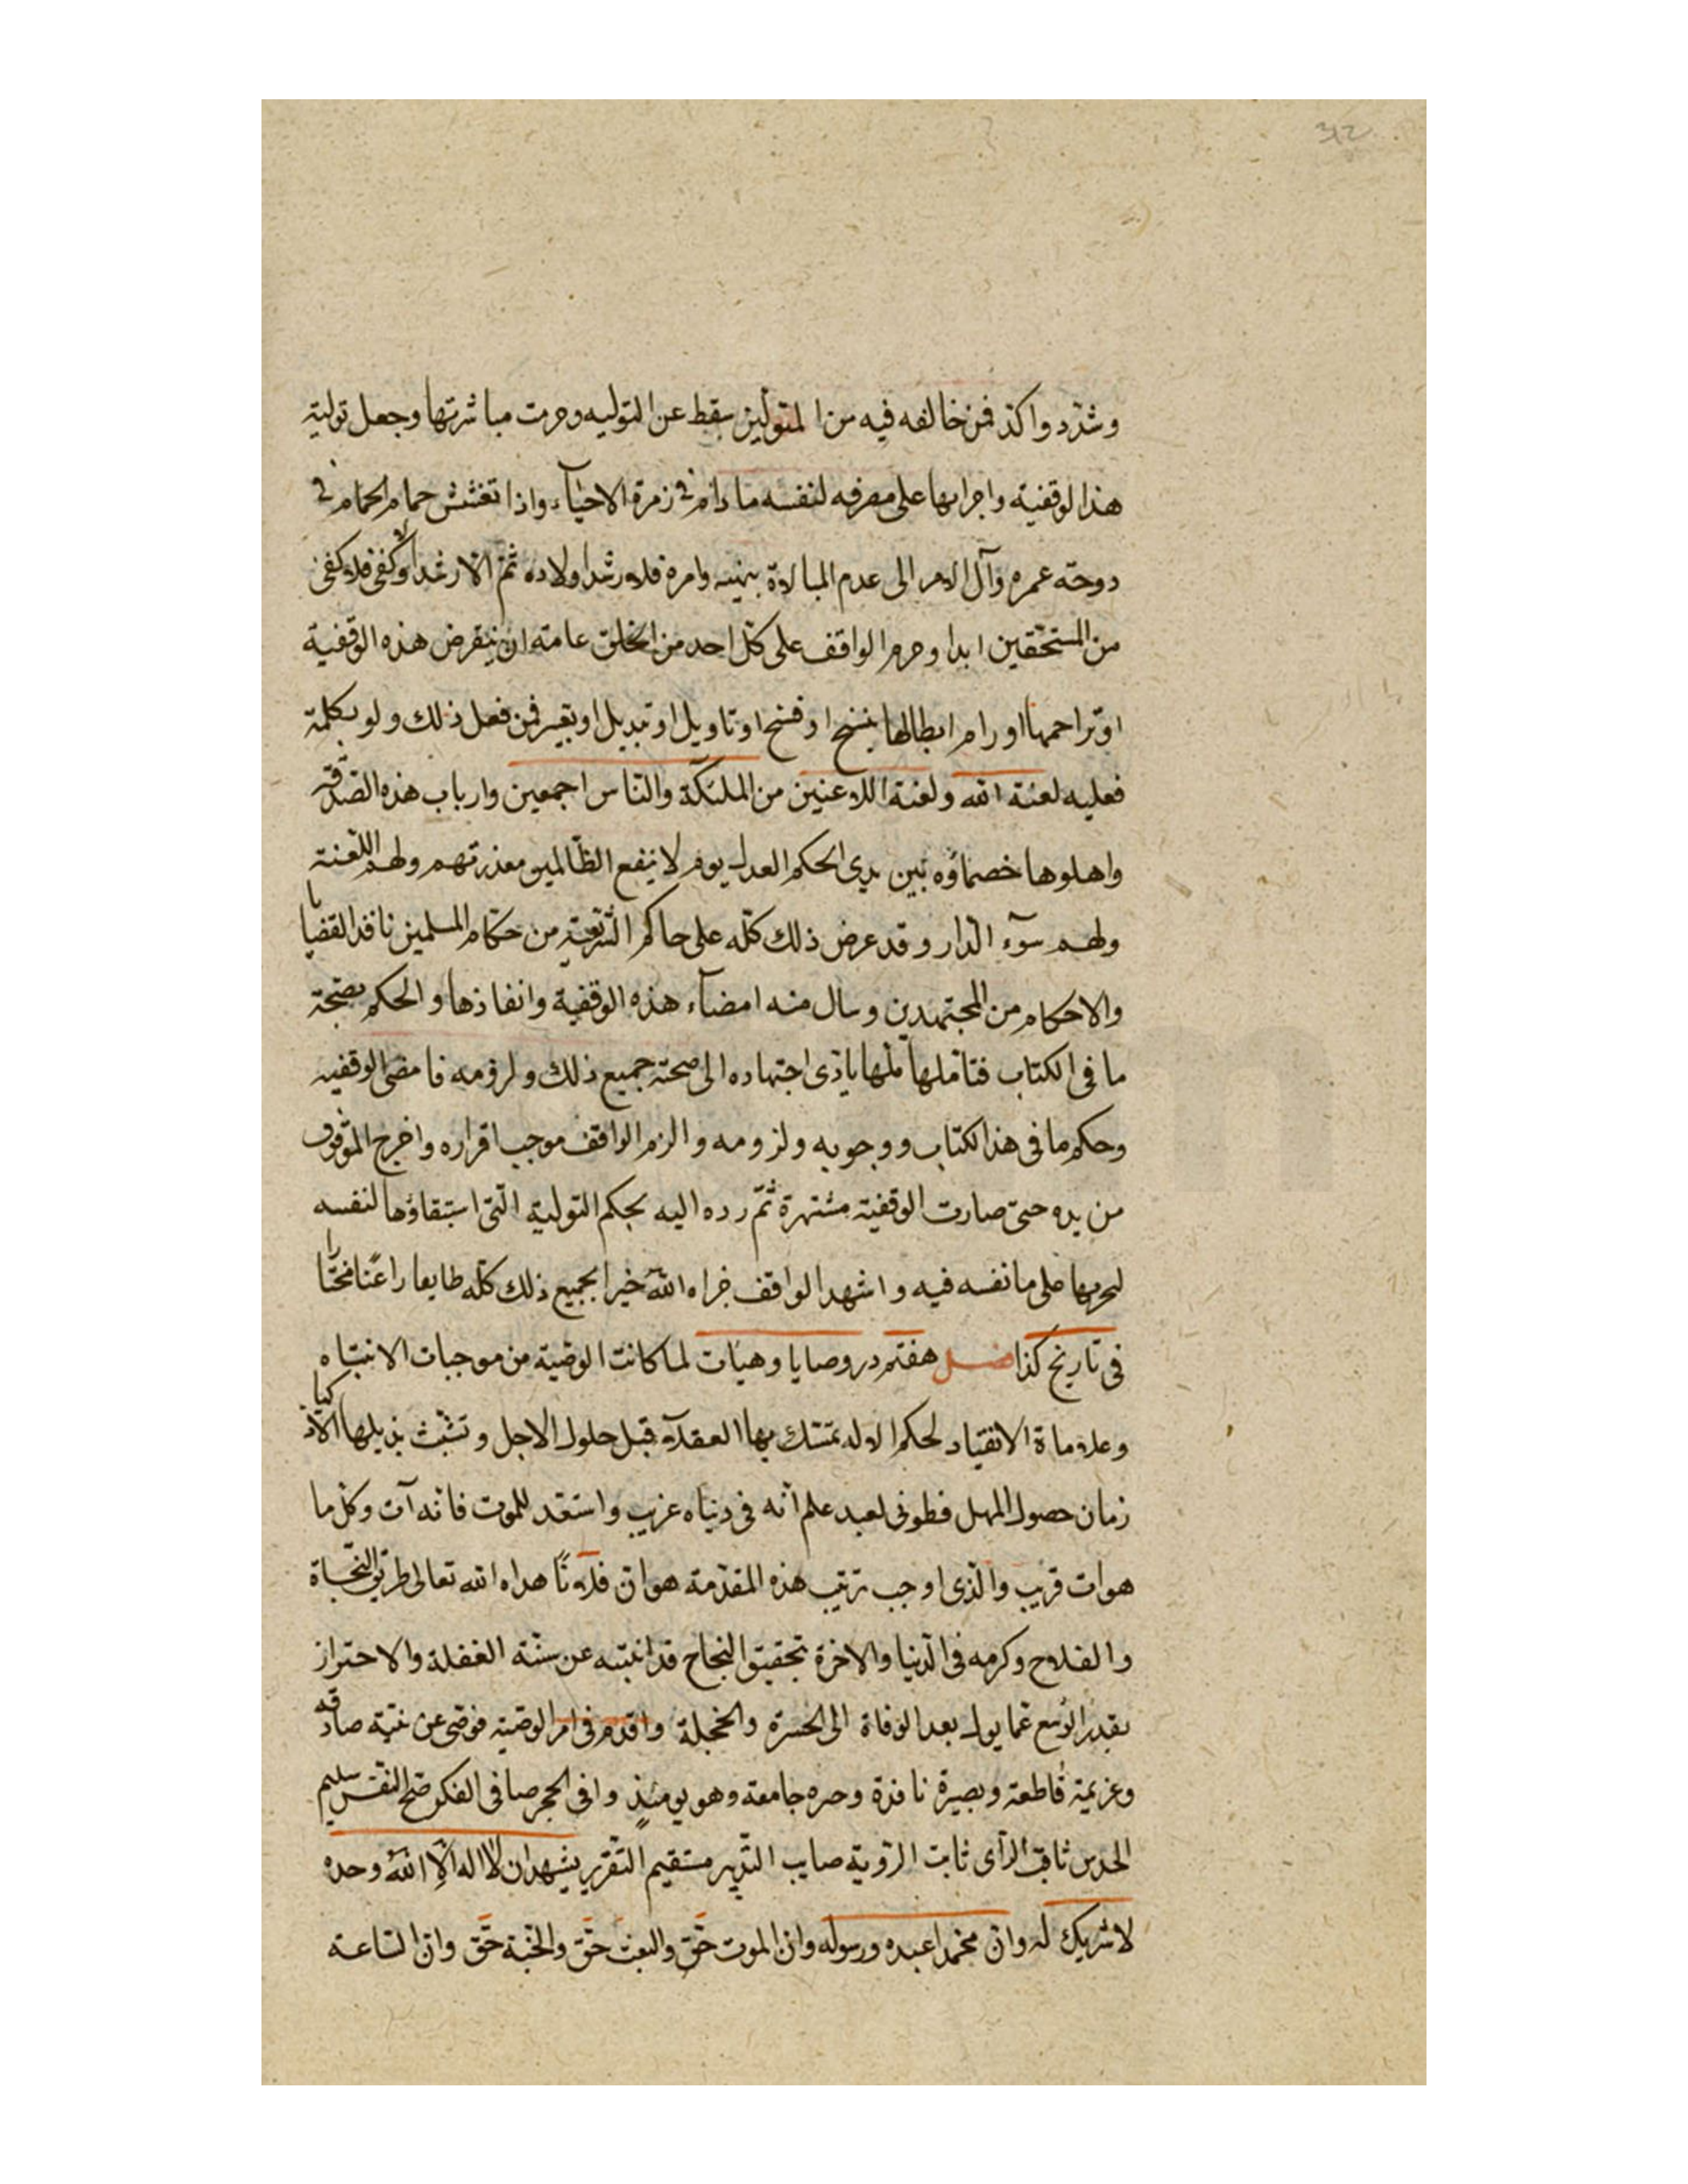 وشدّد واكد فمن خالفه فيه من المتولّين سقط عن التوليه وحرمت مباشرتها وجعل تولية
هذا الوقفية واجرايها على مصرفه لنفسه مادام فى زمرة الاحيآء واذا تغشش حمام الحمام فى
دوحة عمره وآل الامر الى عدم المبالاة بنهيه وامره فلارشد اولاده ثمّ الارشد اولا كفى فلا كفى
من المستحقين ابدا وحرم الواقف على كلّ احد من الخلق عامة ان ينقرض هذه الوقفية
او تراحمها او رام ابطالها بنسخ او فسخ او تاويل او تبديل او تغيير فمن فعل ذلك ولو بكلمة
فعليه لعنة الله ولعنة اللاعنين من الملئكة والنّاس اجمعين وارباب هذه الصّدقة
واهلوها خصماؤه بين يدى الحكم العدل يوم لا ينفع الظّالمين معذرتهم ولهم اللّعنة
ولهم سوٓء الدّار وقد عرض ذلك كلّه على حاكم الشّريعة من حكّام المسلمين نافذ القضايا
والاحكام من المجتهدين وسال منه امضآء هذه الوقفية وانفاذها والحكم بصحّة
ما فى الكتاب فتاملها اجتهاده الى صحة جميع ذلك ولزومه فامضى الوقفيه
وحكم ما فى هذا الكتاب ووجوبه ولزومه والزم الواقف موجب اقراره واخرج الموقوف
من يده حتى صارت الوقفية مشتهرة ثمّ رده اليه بحكم التولية الّتى استبقاؤها لنفسه
ليجريها على ما نفسه فيه واشهد الواقف جزاه الله خيرا بجميع ذلك كلّه طايعا راغبًا مختارا
فى تاريخ كذا فصل هفتم در وصايا وهبات لما كانت الوصية من موجبات الانتباه
وعلاماة الانقياد لحكم الاله تمسّك بها العقلآء قبل حلول الاجل وتشبّث بذيلها الاذكيا
زمان حصول المهل فطوبى لعبد علم انّه فى دنياه غريب واستعد للموت فانه آت وكل ما
هوات قريب والّذى اوجب ترتيب هذه المقدّمة هوان فلانًا هداه الله تعالى طريق النّجاة
والفلاح وكرمه فى الدّنيا والاخرة بتحقيق النجاح قد انتبه عن سنّة الغفلة والاحتراز
بقدر الوسع عمّا يول بعد الوفاة الى الحسرة والخجلة واقدم فى امر الوصية فوصى عن نيّة صادقه
وعزيمة قاطعة وبصيرة نافذة وحره جامعة وهو يومئذٍ وافى الحجر صافى الفكر صح النفس سليم
الحدس ثاقب الرّاى ثابت الرّوية صايب التّدبير مستقيم التّقرير يشهد ان لا اله الّا اللهُ وحده
لا شريك له وانّ محمّدا عبده ورسوله وان الموت حقّ والبعث حقّ والجنّة حقّ وانّ السّاعة